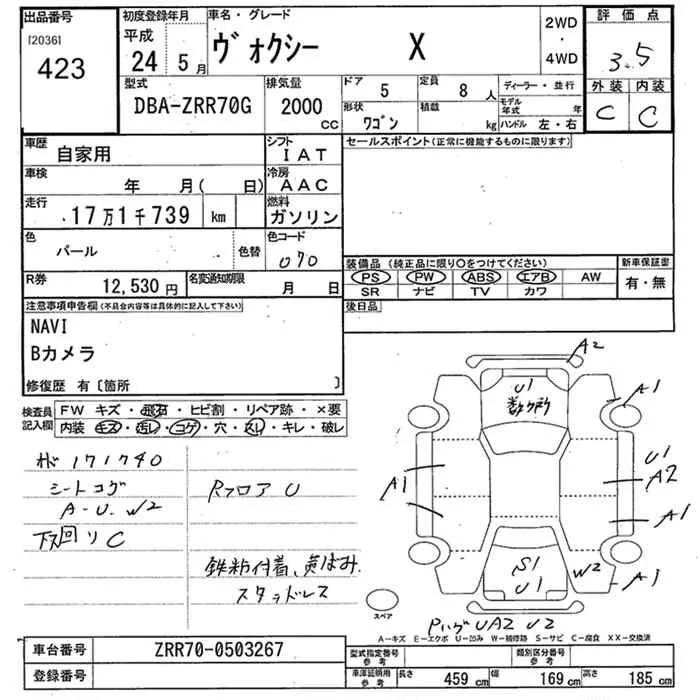 出品番号
[2036]
423
初度登録年月
平成
24 5月
車名・グレード
ヴォクシー X
2WD
・
4WD
評価点
3.5
外装 内装
C C
型式
DBA-ZRR70G
排気量
2000
CC
ドア 5
定員 8 人
形状 ワゴン
積載 kg
ディーラー・並行
モデル年式 年
ハンドル 左・右
車歴
自家用
シフト
IAT
車検
年 月( 日)
冷房
AAC
走行
17万1千739 km
燃料
ガソリン
色
パール
色替
色コード
070
R券
12,530円
名変通知期限
月 日
セールスポイント(正常に機能するものに限ります)
装備品 (純正品に限り○をつけてください)
PS PW ABS エアB AW
SR ナビ TV カワ
新車保証書
有・無
後日品
注意事項申告欄(不具合内容等は具体的に記入して下さい)
NAVI
Bカメラ
修復歴 有〔箇所 〕
検査員記入欄
FW キズ・飛石・ヒビ割・リペア跡・×要
内装 キズ・汚レ・コゲ・穴・スレ・キレ・破レ
171740
シートコゲ
A-U. W2
下回りC
Rフロア U
鉄粉付着、黄ばみ
スタッドレス
A2
U1
数ヶ所
A1
U1
A2
A1
A1
S1
U1
W2
A1
スペア
UA2 U2
A-キズ E-エクボ U-凹み W-補修跡 S-サビ C-腐食 XX-交換済
車台番号
ZRR70-0503267
登録番号
型式指定番号
参考
類別区分番号
参考
車庫証明用
参考
長さ 459 cm
幅 169 cm
高さ 185 cm